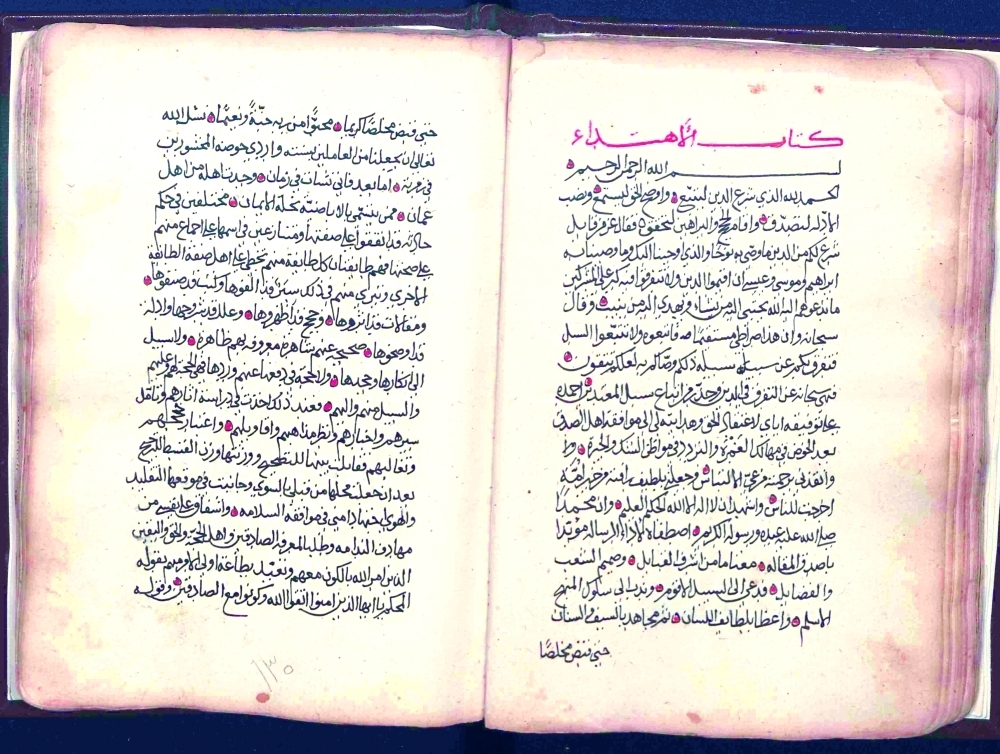 كتاب الأهتداء
بسم الله الرحمن الرحيم
الحمد لله الذي شرع الدين ليتبع واوضح الحق ليستمع ونصب
الأدلة ليصدق واقام الحجج والبراهين لتحقق فقال عز من قايل
شرع لكم من الدين ما وصى به نوحا والذي اوحينا اليك وما وصينا به
ابراهيم وموسى وعيسى ان اقيموا الدين ولا تتفرقوا فيه كبر على المشركين
ما تدعوهم اليه الله يجتبي اليه من يشاء ويهدي اليه من ينيب وقال
سبحانه وان هذا صراطي مستقيما فاتبعوه ولا تتبعوا السبل
فتفرق بكم عن سبيله ذلكم وصاكم به لعلكم تتقون
فنهى سبحانه عن التفرق في الدين وحذر من اتباع سبيل المعتدين احمده
على توفيقه اياي لاعتقاد الحق وهدايته لي الى موافقة اهل الصدق
بعد الخوض في مهالك الغمرة والتردد في مواطن الشك والحيرة
وانقذني برحمته من الالتباس وجعلني بلطيف رافته من خير امة
اخرجت للناس واشهد ان لا اله الا الله الحكيم العليم وان محمدا
صلى الله عليه عبده ورسوله الكريم اصطفاه لاداء الرسالة مؤيدا
باصدق المقالة من اشرف القبايل وصميم الشعب
والفضايل فدعى الى السبيل الأقوم وندب الى سلوك المنهج
الأسلم واعظا بلطايف اللسان ثم مجاهدا بالسيف والسنان
حتى قبض مخلصا
حتى قبض مخلصا كريما من ربه جنة ونعيما نسئل الله
تعالى ان يجعلنا من العاملين بسنته واردي حوضه المحشورين
في زمرته اما بعد فاني نشات في زمان وجدت اهله من اهل
عمان ممن ينتمي بالاباضية نحلة الايمان مختلفين في حكم
حادثة قد اتفقوا على صفتها ومتنازعين في اسمها على اجتماع منهم
على صحتها فهم طايفتان كل طايفة منهم تخطي على اهل صفة الطايفة
الاخرى وتبرى منهم في ذلك سير قد الفوها وكتب قد صنفوها
ومقالات قد اثروها وحجج قد اظهروها وعلل قد شرحوها وادلة
قد اوضحوها صحيحة عنهم شاهرة معروفة بهم ظاهرة ولا سبيل
الى انكارها وجحدها ولا حجة في دفعها عنهم وردها فهي الحجة لهم وعليهم
والسبيل منهم واليهم فعند ذلك اخذت في دراسة اثارهم وتاقل
سيرهم واخبارهم والنظر مذاهبهم واقاويلهم واعتبار حججهم
وتعاليلهم فقابلت بينها للتصحيح ووزنتها وزن القسط للترجيح
بعد ان جعلت محلها من قبلي بالسوى وجانبت في موقعها التقليد
والهوى اجتهادا مني في موافقة السلامة واشفاق على نفسي من
مهاوي الندامة وطلبا لمعرفة الصادقين واهل الحجة والحق واليقين
الذين امر الله بالكون معهم وتعبد بطاعة اولي الامر منهم بقوله
المحكم يا ايها الذين امنوا اتقوا الله وكونوا مع الصادقين وقوله
١٣٥